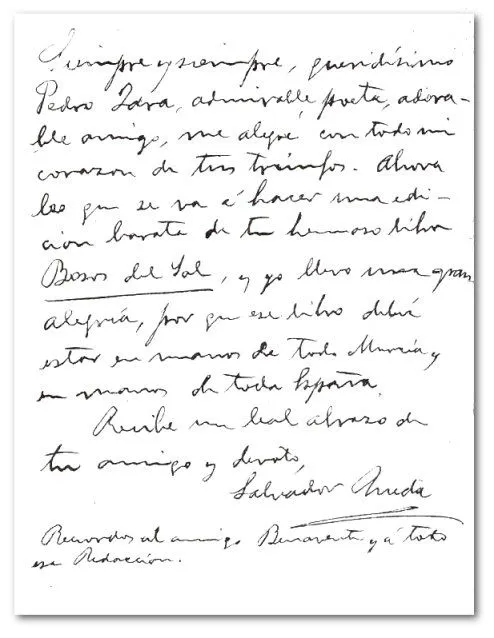 Siempre y siempre, queridísimo
Pedro Jara, admirable poeta, adora-
ble amigo, me alegré con todo mi
corazon de tus triunfos. Ahora
leo que se va á hacer una edi-
ción barata de tu hermoso libro
Besos del Sol, y yo llevo una gran
alegría, por que ese libro debiá
estar en manos de todo Murcia y
en manos de toda España.
Recibe un leal abrazo de
tu amigo y devoto,
Salvador Rueda
Recuerdos al amigo Benavente y á toda
esa Redacción.